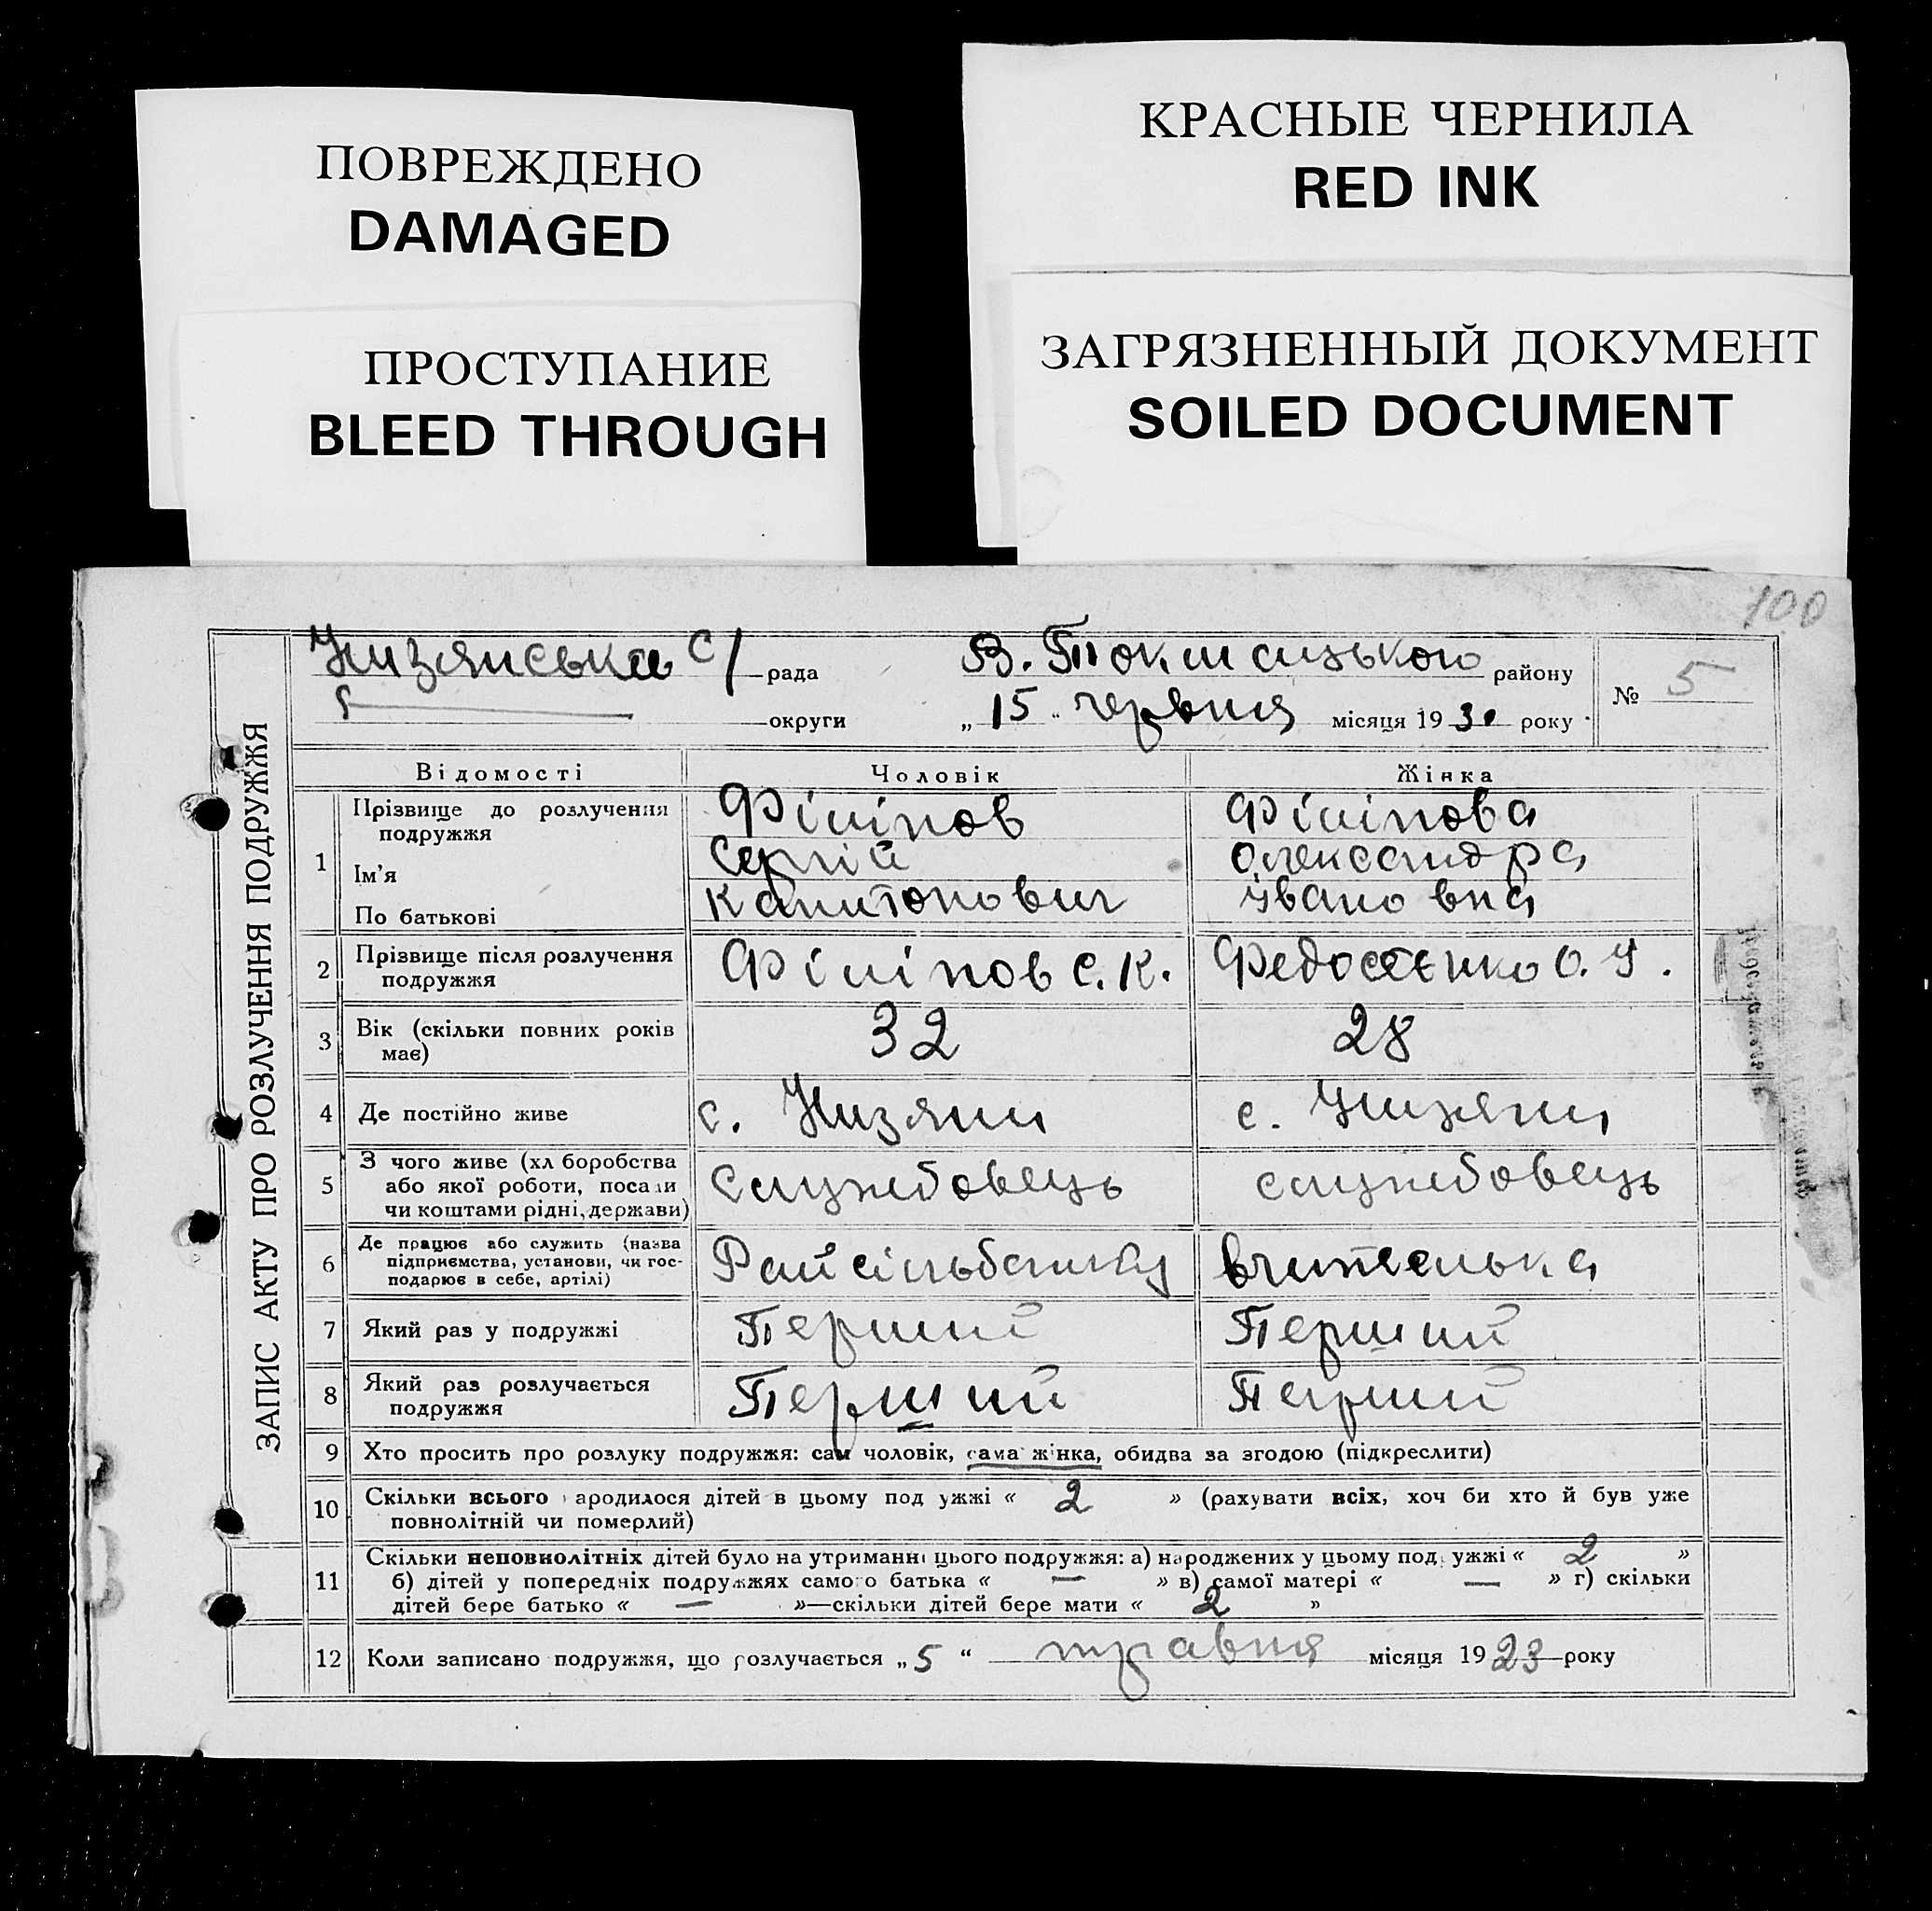 ПОВРЕЖДЕНО
DAMAGED
ПРОСТУПАНИЕ
BLEED THROUGH
КРАСНЫЕ ЧЕРНИЛА
RED INK
ЗАГРЯЗНЕННЫЙ ДОКУМЕНТ
SOILED DOCUMENT
100
ЗАПИС АКТУ ПРО РОЗЛУЧЕННЯ ПОДРУЖЖЯ
Низянська с/ рада В. Токмацького району
округи „15" червня місяця 1930 року
№ 5
Відомості Чоловік Жінка
1 Прізвище до розлучення подружжя Філіпов Філіпова
Ім'я Сергій Олександра
По батькові Капитонович Івановна
2 Прізвище після розлучення подружжя Філіпов С. К. Федосєєнко О. І.
3 Вік (скільки повних років має) 32 28
4 Де постійно живе с. Низяни с. Низяни
5 З чого живе (хл боробства або якої роботи, посади чи коштами рідні, держави) Службовець службовець
6 Де працює або служить (назва підприємства, установи, чи господарює в себе, артілі) Райсільбанку вчителька
7 Який раз у подружжі Перший Перший
8 Який раз розлучається подружжя Перший Перший
9 Хто просить про розлуку подружжя: сам чоловік, сама жінка, обидва за згодою (підкреслити)
10 Скільки всього народилося дітей в цьому подружжі « 2 » (рахувати всіх, хоч би хто й був уже
повнолітній чи померлий)
11 Скільки неповнолітніх дітей було на утриманні цього подружжя: а) народжених у цьому подружжі « 2 »
б) дітей у попередніх подружжях самого батька « — » в) самої матері « — » г) скільки
дітей бере батько « — »—скільки дітей бере мати « 2 »
12 Коли записано подружжя, що розлучається „5" травня місяця 1923 року